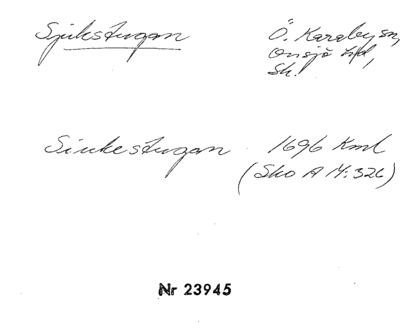 Sjukstugan Ö. Karaby sn,
Onsjö hd,
Sk.
Siukestugan 1696 Kml
(Sko A M:326)
Nr 23945